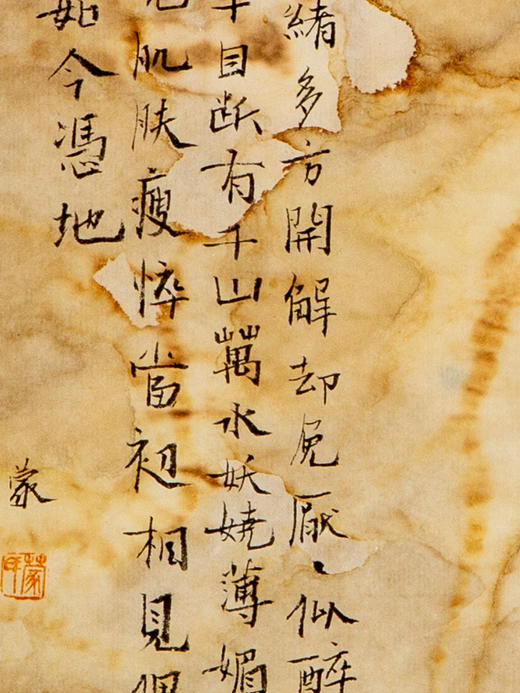 緒多方開解却免厭、似醉
目断有千山萬水妖嬈薄媚
肌肤瘦悴當初相見偶
如今憑地
蒙